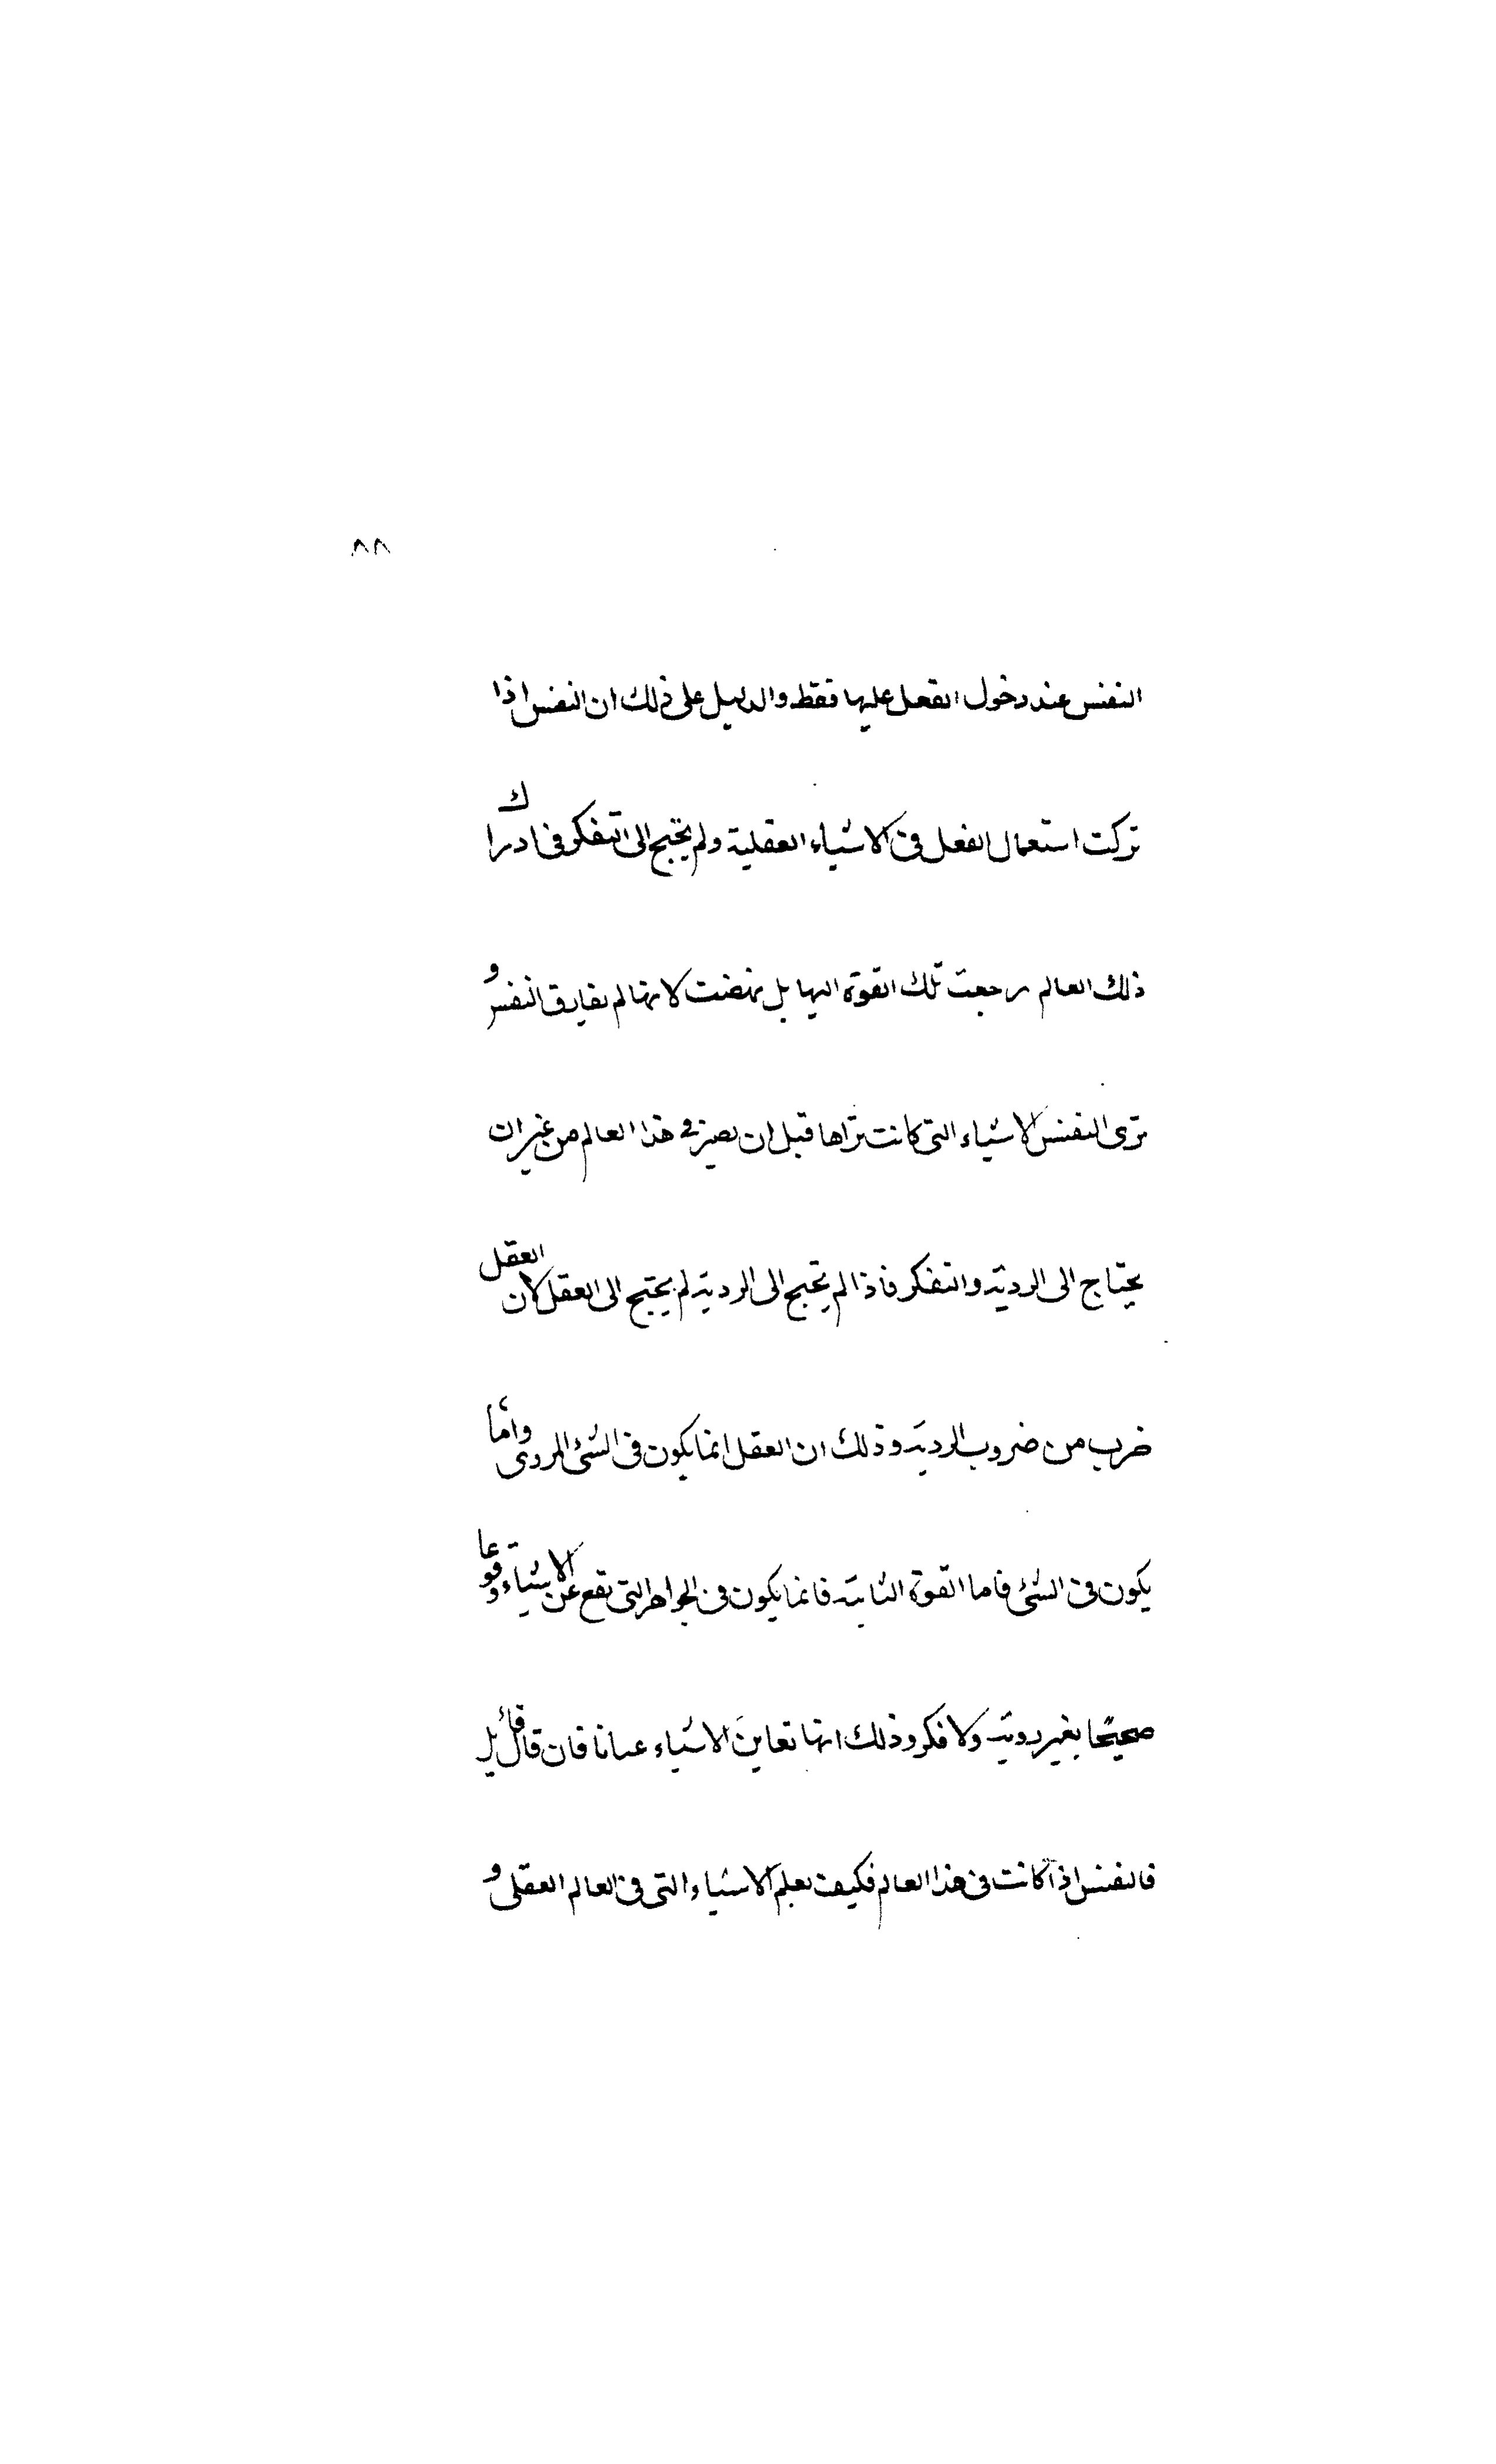 ٨٨
النفس عند دخول الفعل عليها فقط والدليل على ذلك ان النفس اذا
تركت استعمال الفعل فى الاشياء العقلية ولم يحتج الى التفكر فى ادراك
ذلك العالم رجعت تلك القوة اليها بل نهضت لانها لم يفارق النفس و
ترى النفس الاشياء التى كانت تراها قبل ان يصير فى هذا العالم من غير ان
يحتاج الى الروية والتفكر فاذا لم يحتج الى الروية لم يحتج الى العقل لان العقل
ضرب من ضروب الروية وذلك ان العقل انما يكون فى الشئ المروى واما
يكون فى الشئ فاما القوة الثابتة فانما يكون فى الجواهر التى يقع عن الاشياء وقوعا
صحيحا بغير روية ولا فكر وذلك انها تعاين الاشياء عيانا فان قال قائل
فالنفس اذا كانت فى هذا العالم فكيف يعلم الاشياء التى فى العالم العقلى و